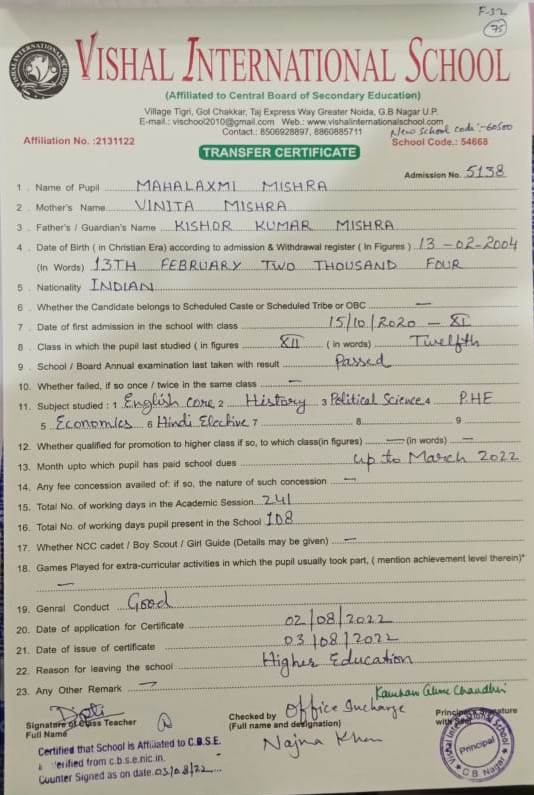 F-32
75
VISHAL INTERNATIONAL SCHOOL
(Affiliated to Central Board of Secondary Education)
Village Tigri, Gol Chakkar, Taj Express Way Greater Noida, G.B Nagar U.P.
E-mail.: vischool2010@gmail.com Web.: www.vishalinternationalschool.com
Contact.: 8506928897, 8860885711
New School code :-60500
Affiliation No. :2131122 School Code.: 54668
TRANSFER CERTIFICATE
Admission No. 5138
1 . Name of Pupil MAHALAXMI MISHRA
2 . Mother's Name VINITA MISHRA
3 . Father's / Guardian's Name KISHOR KUMAR MISHRA
4 . Date of Birth ( in Christian Era) according to admission & Withdrawal register ( In Figures ) 13-02-2004
(In Words) 13TH FEBRUARY TWO THOUSAND FOUR
5 . Nationality INDIAN
6 . Whether the Candidate belongs to Scheduled Caste or Scheduled Tribe or OBC —
7 . Date of first admission in the school with class 15/10/2020 — XI
8 . Class in which the pupil last studied ( in figures XII ( in words) Twelfth
9 . School / Board Annual examination last taken with result Passed
10. Whether failed, if so once / twice in the same class —
11. Subject studied : 1 English core 2 History 3 Political Science 4 P.HE
5 Economics 6 Hindi Elective 7 8 9
12. Whether qualified for promotion to higher class if so, to which class(in figures) — (in words) —
13. Month upto which pupil has paid school dues up to March 2022
14. Any fee concession availed of: if so, the nature of such concession —
15. Total No. of working days in the Academic Session 241
16. Total No. of working days pupil present in the School 108
17. Whether NCC cadet / Boy Scout / Girl Guide (Details may be given) —
18. Games Played for extra-curricular activities in which the pupil usually took part, ( mention achievement level therein)*
—
19. Genral Conduct Good
20. Date of application for Certificate 02/08/2022
21. Date of issue of certificate 03/08/2022
22. Reason for leaving the school Higher Education
23. Any Other Remark —
Signature of Class Teacher
Full Name
Checked by Office Incharge
(Full name and designation)
Najma Khan
Principal's Signature
with Seal
Certified that School is Affiliated to C.B.S.E.
verified from c.b.s.e.nic.in.
Counter Signed as on date 03/08/22
Vishal International School
Principal
G.B. Nagar